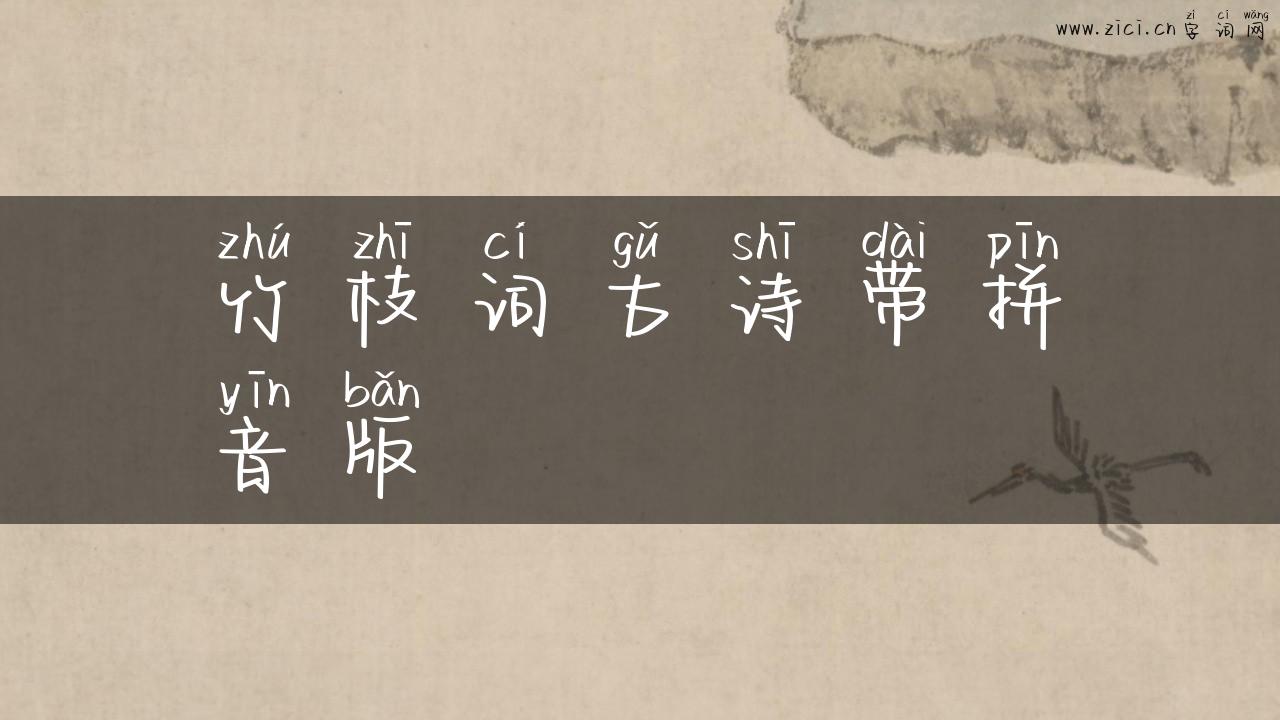 zì cí wǎng
www.zici.cn 字词网
zhú zhī cí gǔ shī dài pīn
竹枝词古诗带拼
yīn bǎn
音版